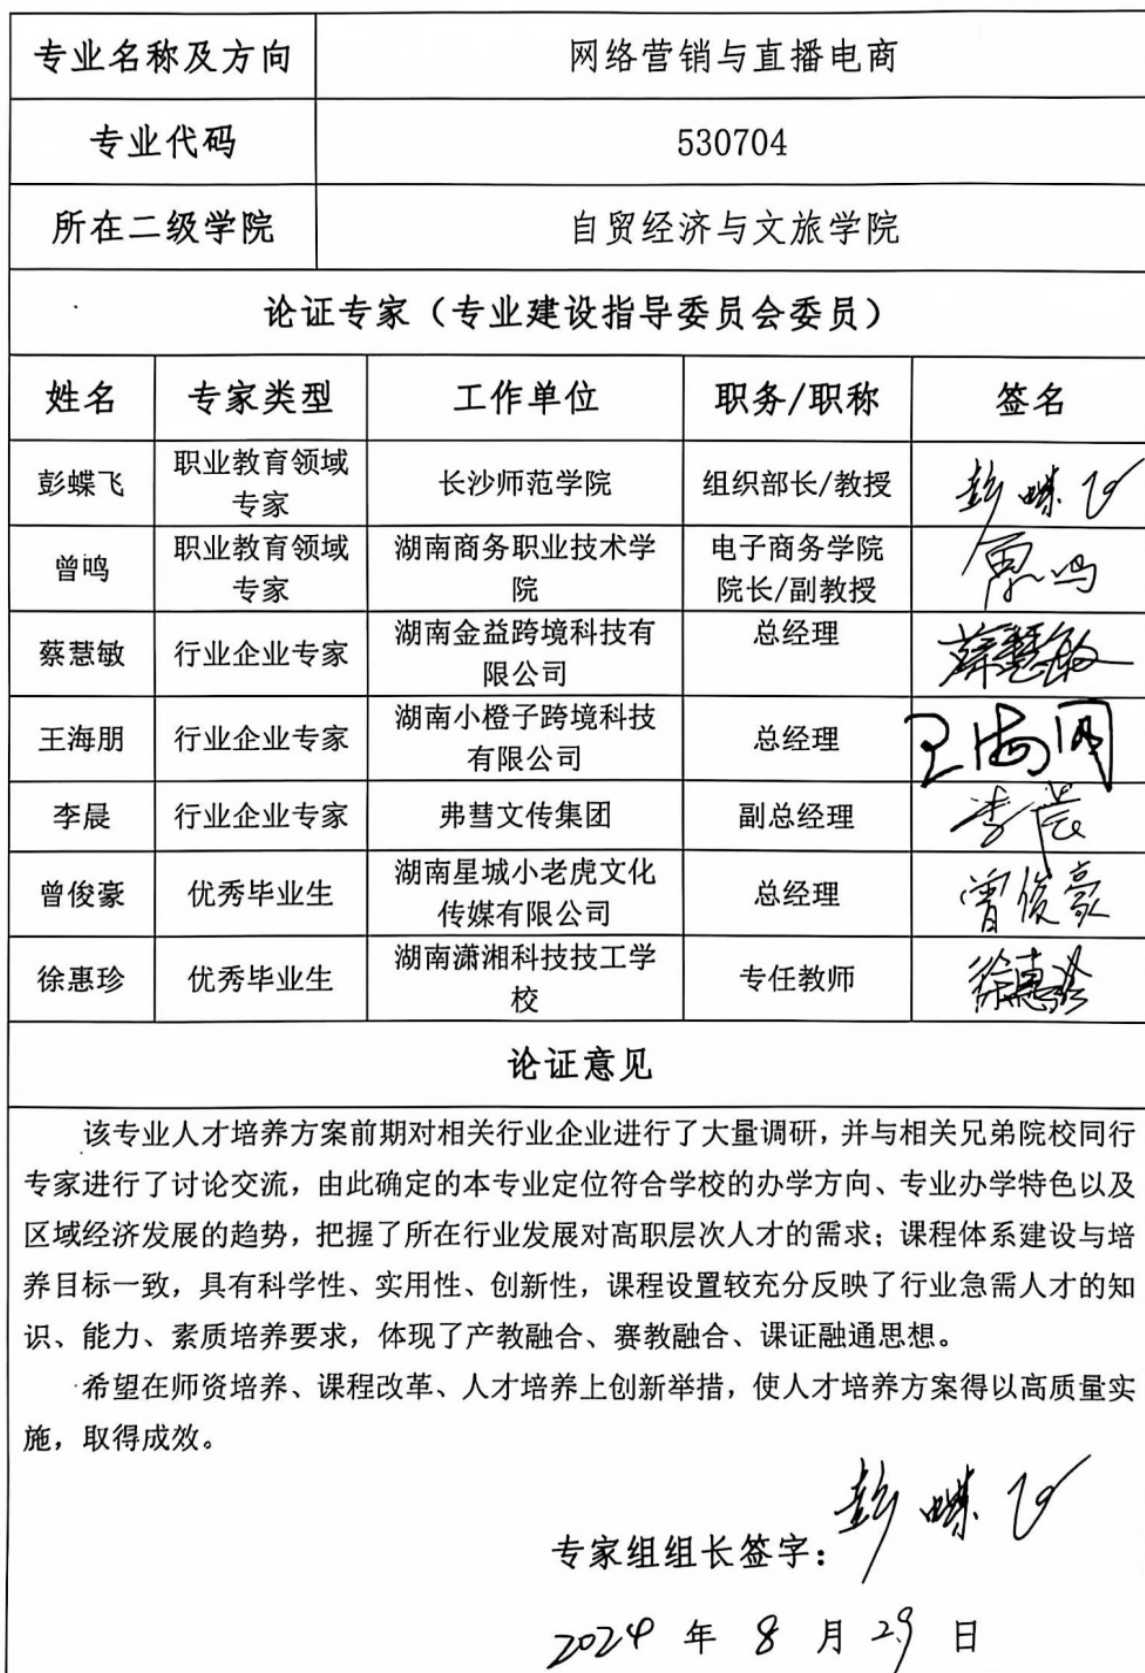 专业名称及方向 网络营销与直播电商
专业代码 530704
所在二级学院 自贸经济与文旅学院
论证专家（专业建设指导委员会委员）
姓名 专家类型 工作单位 职务/职称 签名
彭蝶飞 职业教育领域专家 长沙师范学院 组织部长/教授 彭蝶飞
曾鸣 职业教育领域专家 湖南商务职业技术学院 电子商务学院院长/副教授 曾鸣
蔡慧敏 行业企业专家 湖南金益跨境科技有限公司 总经理 蔡慧敏
王海朋 行业企业专家 湖南小橙子跨境科技有限公司 总经理 王海朋
李晨 行业企业专家 弗彗文传集团 副总经理 李晨
曾俊豪 优秀毕业生 湖南星城小老虎文化传媒有限公司 总经理 曾俊豪
徐惠珍 优秀毕业生 湖南潇湘科技技工学校 专任教师 徐惠珍
论证意见
该专业人才培养方案前期对相关行业企业进行了大量调研，并与相关兄弟院校同行
专家进行了讨论交流，由此确定的本专业定位符合学校的办学方向、专业办学特色以及
区域经济发展的趋势，把握了所在行业发展对高职层次人才的需求；课程体系建设与培
养目标一致，具有科学性、实用性、创新性，课程设置较充分反映了行业急需人才的知
识、能力、素质培养要求，体现了产教融合、赛教融合、课证融通思想。
希望在师资培养、课程改革、人才培养上创新举措，使人才培养方案得以高质量实
施，取得成效。
专家组组长签字：彭蝶飞
2024 年 8 月 29 日